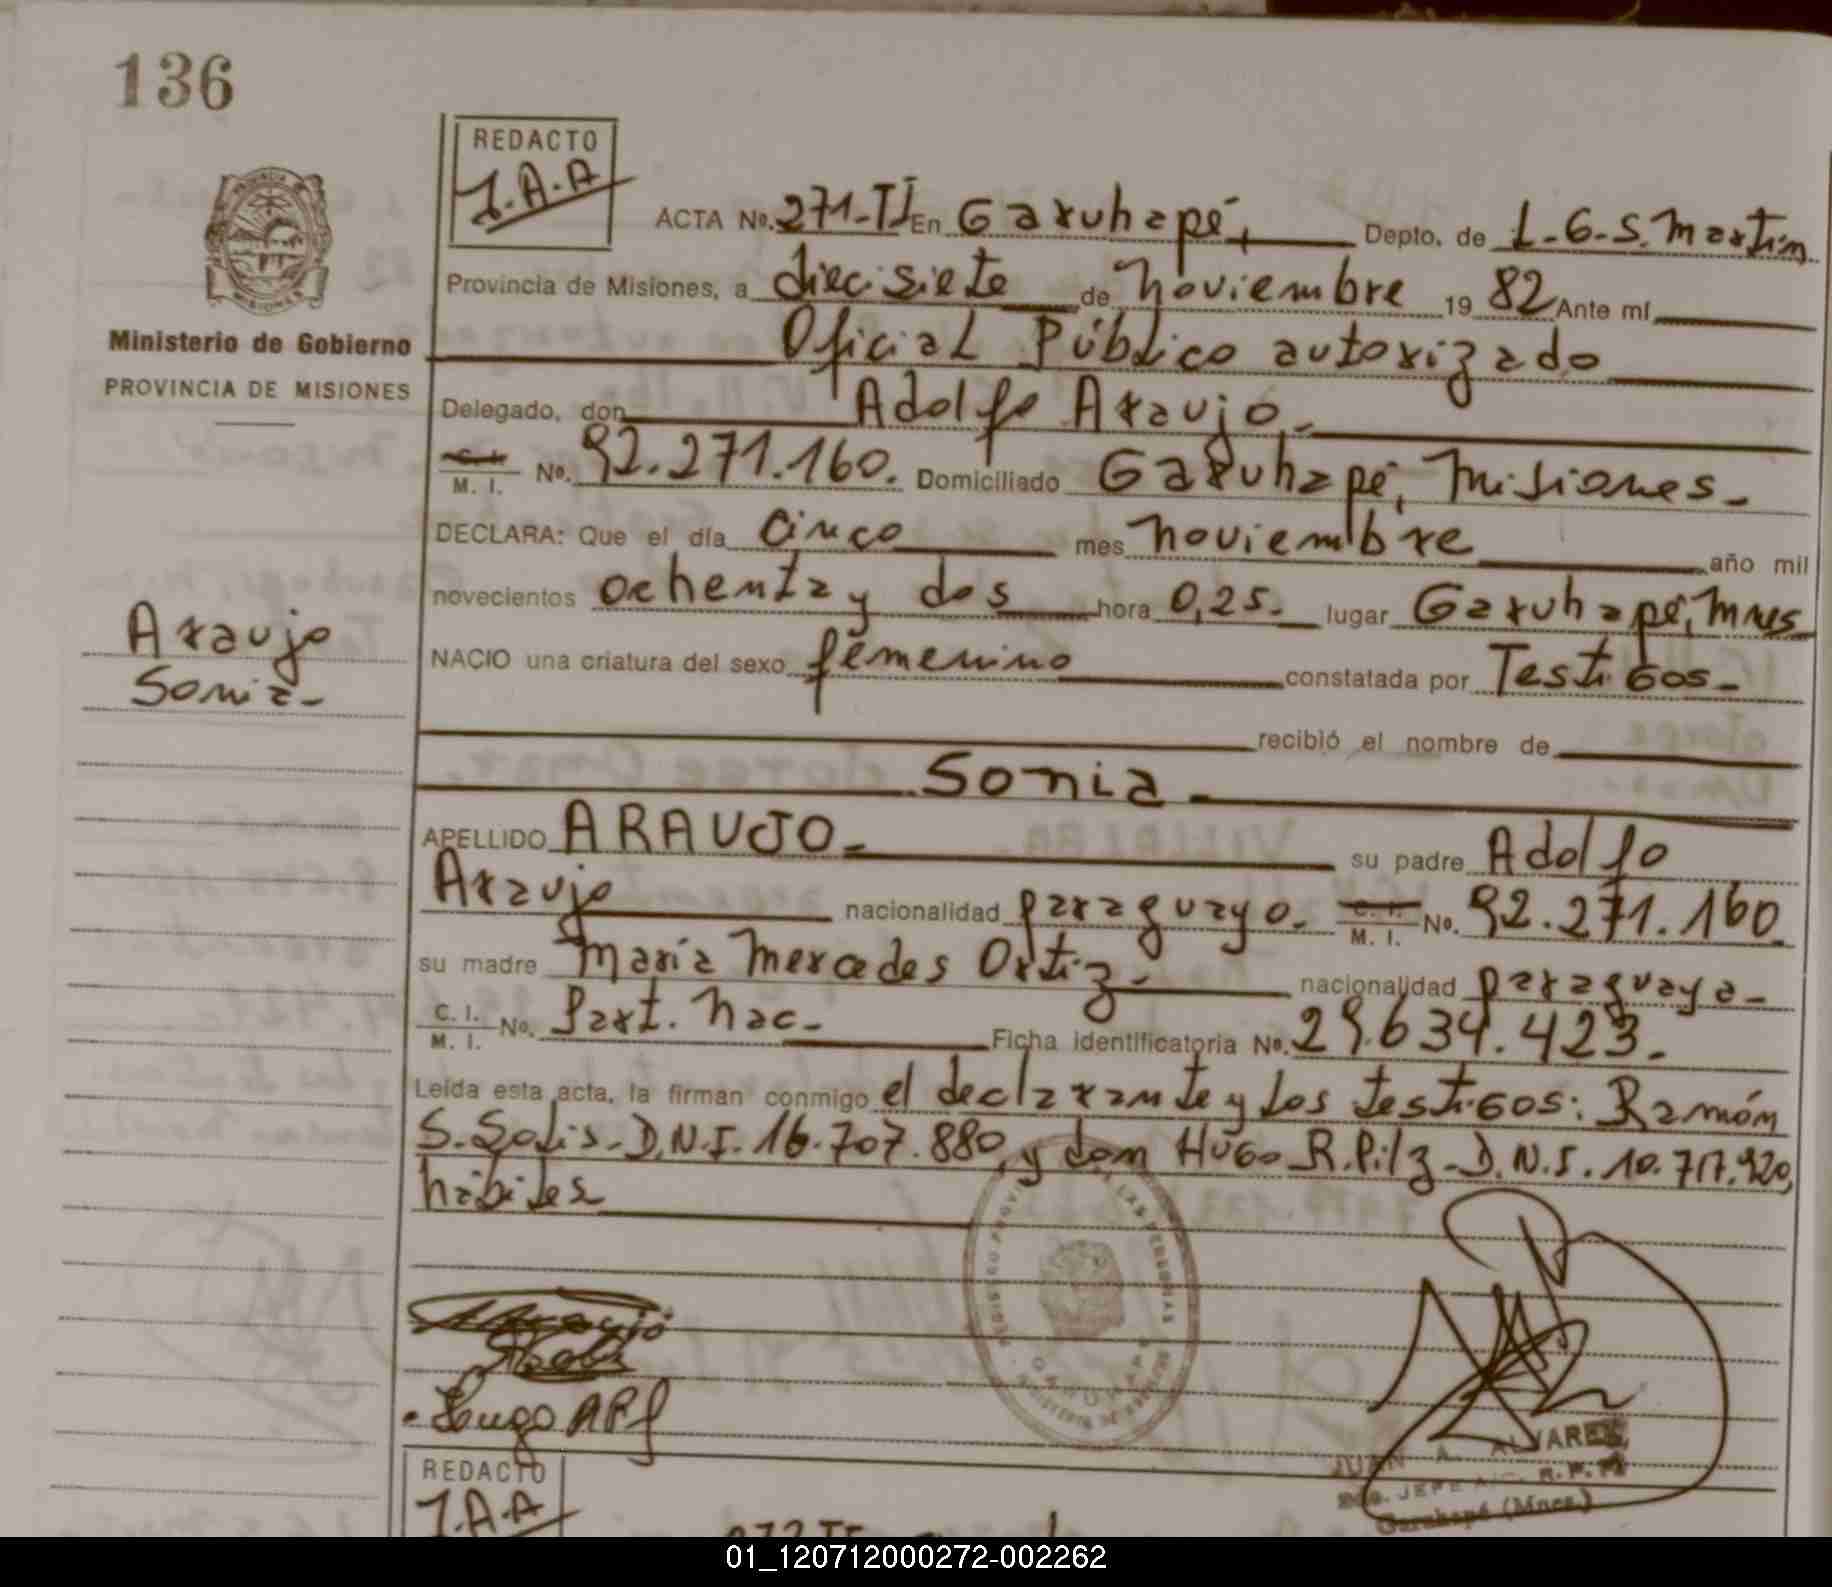 136
REDACTO
J.A.A
ACTA No. 271-TI En Garuhapé, Depto. de L-G-S. Martín
Provincia de Misiones, a diecisiete de noviembre 19 82 Ante mí
Oficial Público autorizado
Ministerio de Gobierno
PROVINCIA DE MISIONES
Delegado, don Adolfo Araujo.-
C. I. M. I. No. 92.271.160. Domiciliado Garuhapé, Misiones-
DECLARA: Que el día cinco mes noviembre año mil
novecientos ochenta y dos hora 0,25.- lugar Garuhapé, Mnes
Araujo
Sonia-
NACIO una criatura del sexo femenino constatada por Testigos-
recibió el nombre de
Sonia
APELLIDO ARAUJO- su padre Adolfo
Araujo nacionalidad paraguayo. C. I. M. I. No. 92.271.160.
su madre María Mercedes Ortiz- nacionalidad paraguaya-
C. I. M. I. No. Part. Nac- Ficha identificatoria No. 29.634.423.-
Leída esta acta, la firman conmigo el declarante y los testigos: Ramón
S. Solis- D.N.I. 16.707.880, y don Hugo R. Pilz- D.N.I. 10.717.920,
hábiles
JUAN A. ALVAREZ
JEFE
Garuhapé (Mnes.)
REDACTO
J.A.A
01_120712000272-002262